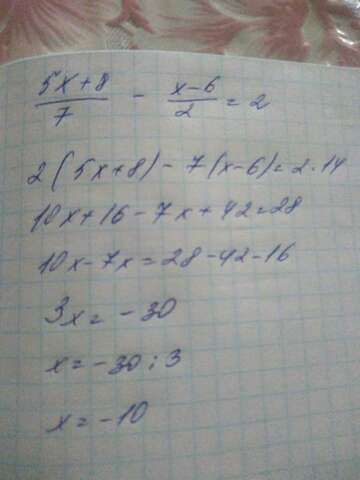 (5x+8)/7 - (x-6)/2 = 2
2(5x+8) - 7(x-6) = 2·14
10x+16-7x+42=28
10x-7x=28-42-16
3x=-30
x=-30:3
x=-10